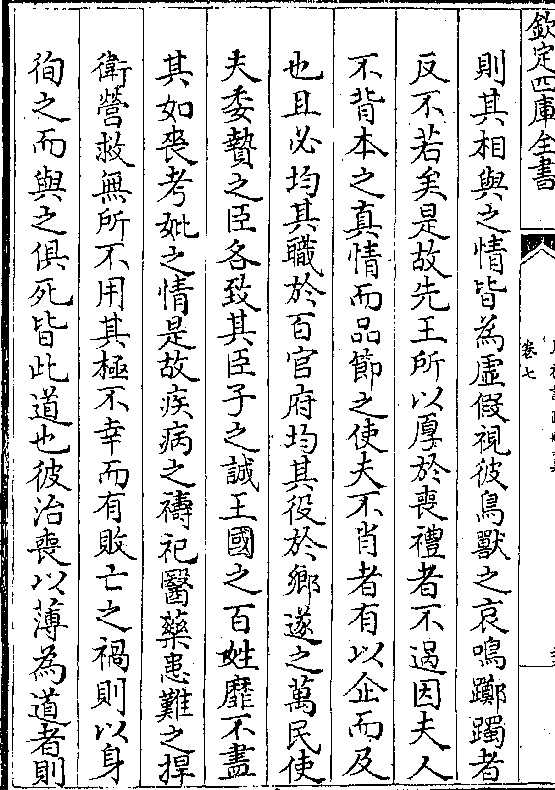 欽定四庫全書
卷七
則其相與之情皆為虛假視彼鳥獸之哀鳴躑躅者
反不若矣是故先王所以厚於喪禮者不過因夫人
不背本之真情而品節之使夫不肖者有以企而及
也且必均其職於百官府均其役於鄉遂之萬民使
夫委贄之臣各致其臣子之誠王國之百姓靡不盡
其如喪考妣之情是故疾病之禱祀醫藥患難之捍
衛營救無所不用其極不幸而有敗亡之禍則以身
徇之而與之俱死皆此道也彼治喪以薄為道者則